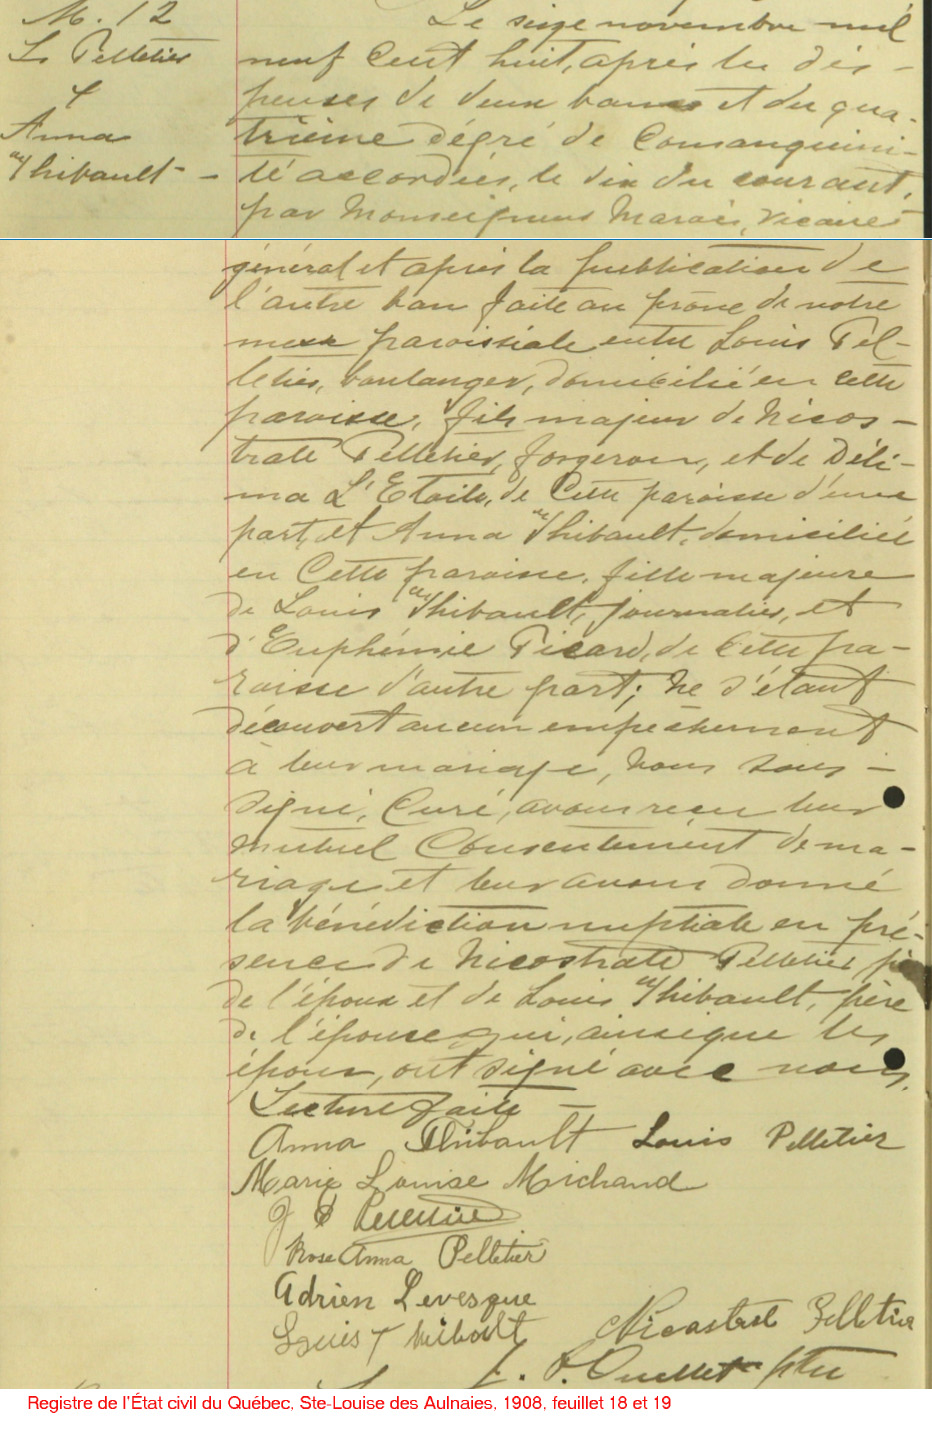 M. 12
Ls Pelletier
&
Anna
Thibault
Le seize novembre mil
neuf cent huit, après les dis-
penses de deux bans et du qua-
trième dégré de Consanguini-
té accordées, le dix du courant,
par Monseigneur Marois, Vicaire
général et après la publication de
l'autre ban faite au prône de notre
messe paroissiale entre Louis Pel-
letier, boulanger, domicilié en cette
paroisse, fils majeur de Nicos-
trate Pelletier, forgeron, et de Déli-
ma L'Etoile, de Cette paroisse d'une
part, et Anna Thibault, domiciliée
en Cette paroisse, fille majeure
de Louis Thibault, journalier, et
d'Euphémie Picard, de Cette pa-
roisse d'autre part; Ne s'étant
découvert aucun empêchement
à leur mariage, Nous sous-
signé, Curé, avons reçu leur
mutuel Consentement de ma-
riage et leur avons donné
la bénédiction nuptiale en pré-
sence de Nicostrate Pelletier père
de l'époux et de Louis Thibault, père
de l'épouse qui, ainsi que les
époux, ont signé avec nous.
Lecture faite
Anna Thibault Louis Pelletier
Marie Louise Michaud
J
Rose Anna Pelletier
Adrien Levesque
Louis Thiboult Nicastrat Pelletier
J. P. Ouellet ptre
Registre de l'État civil du Québec, Ste-Louise des Aulnaies, 1908, feuillet 18 et 19